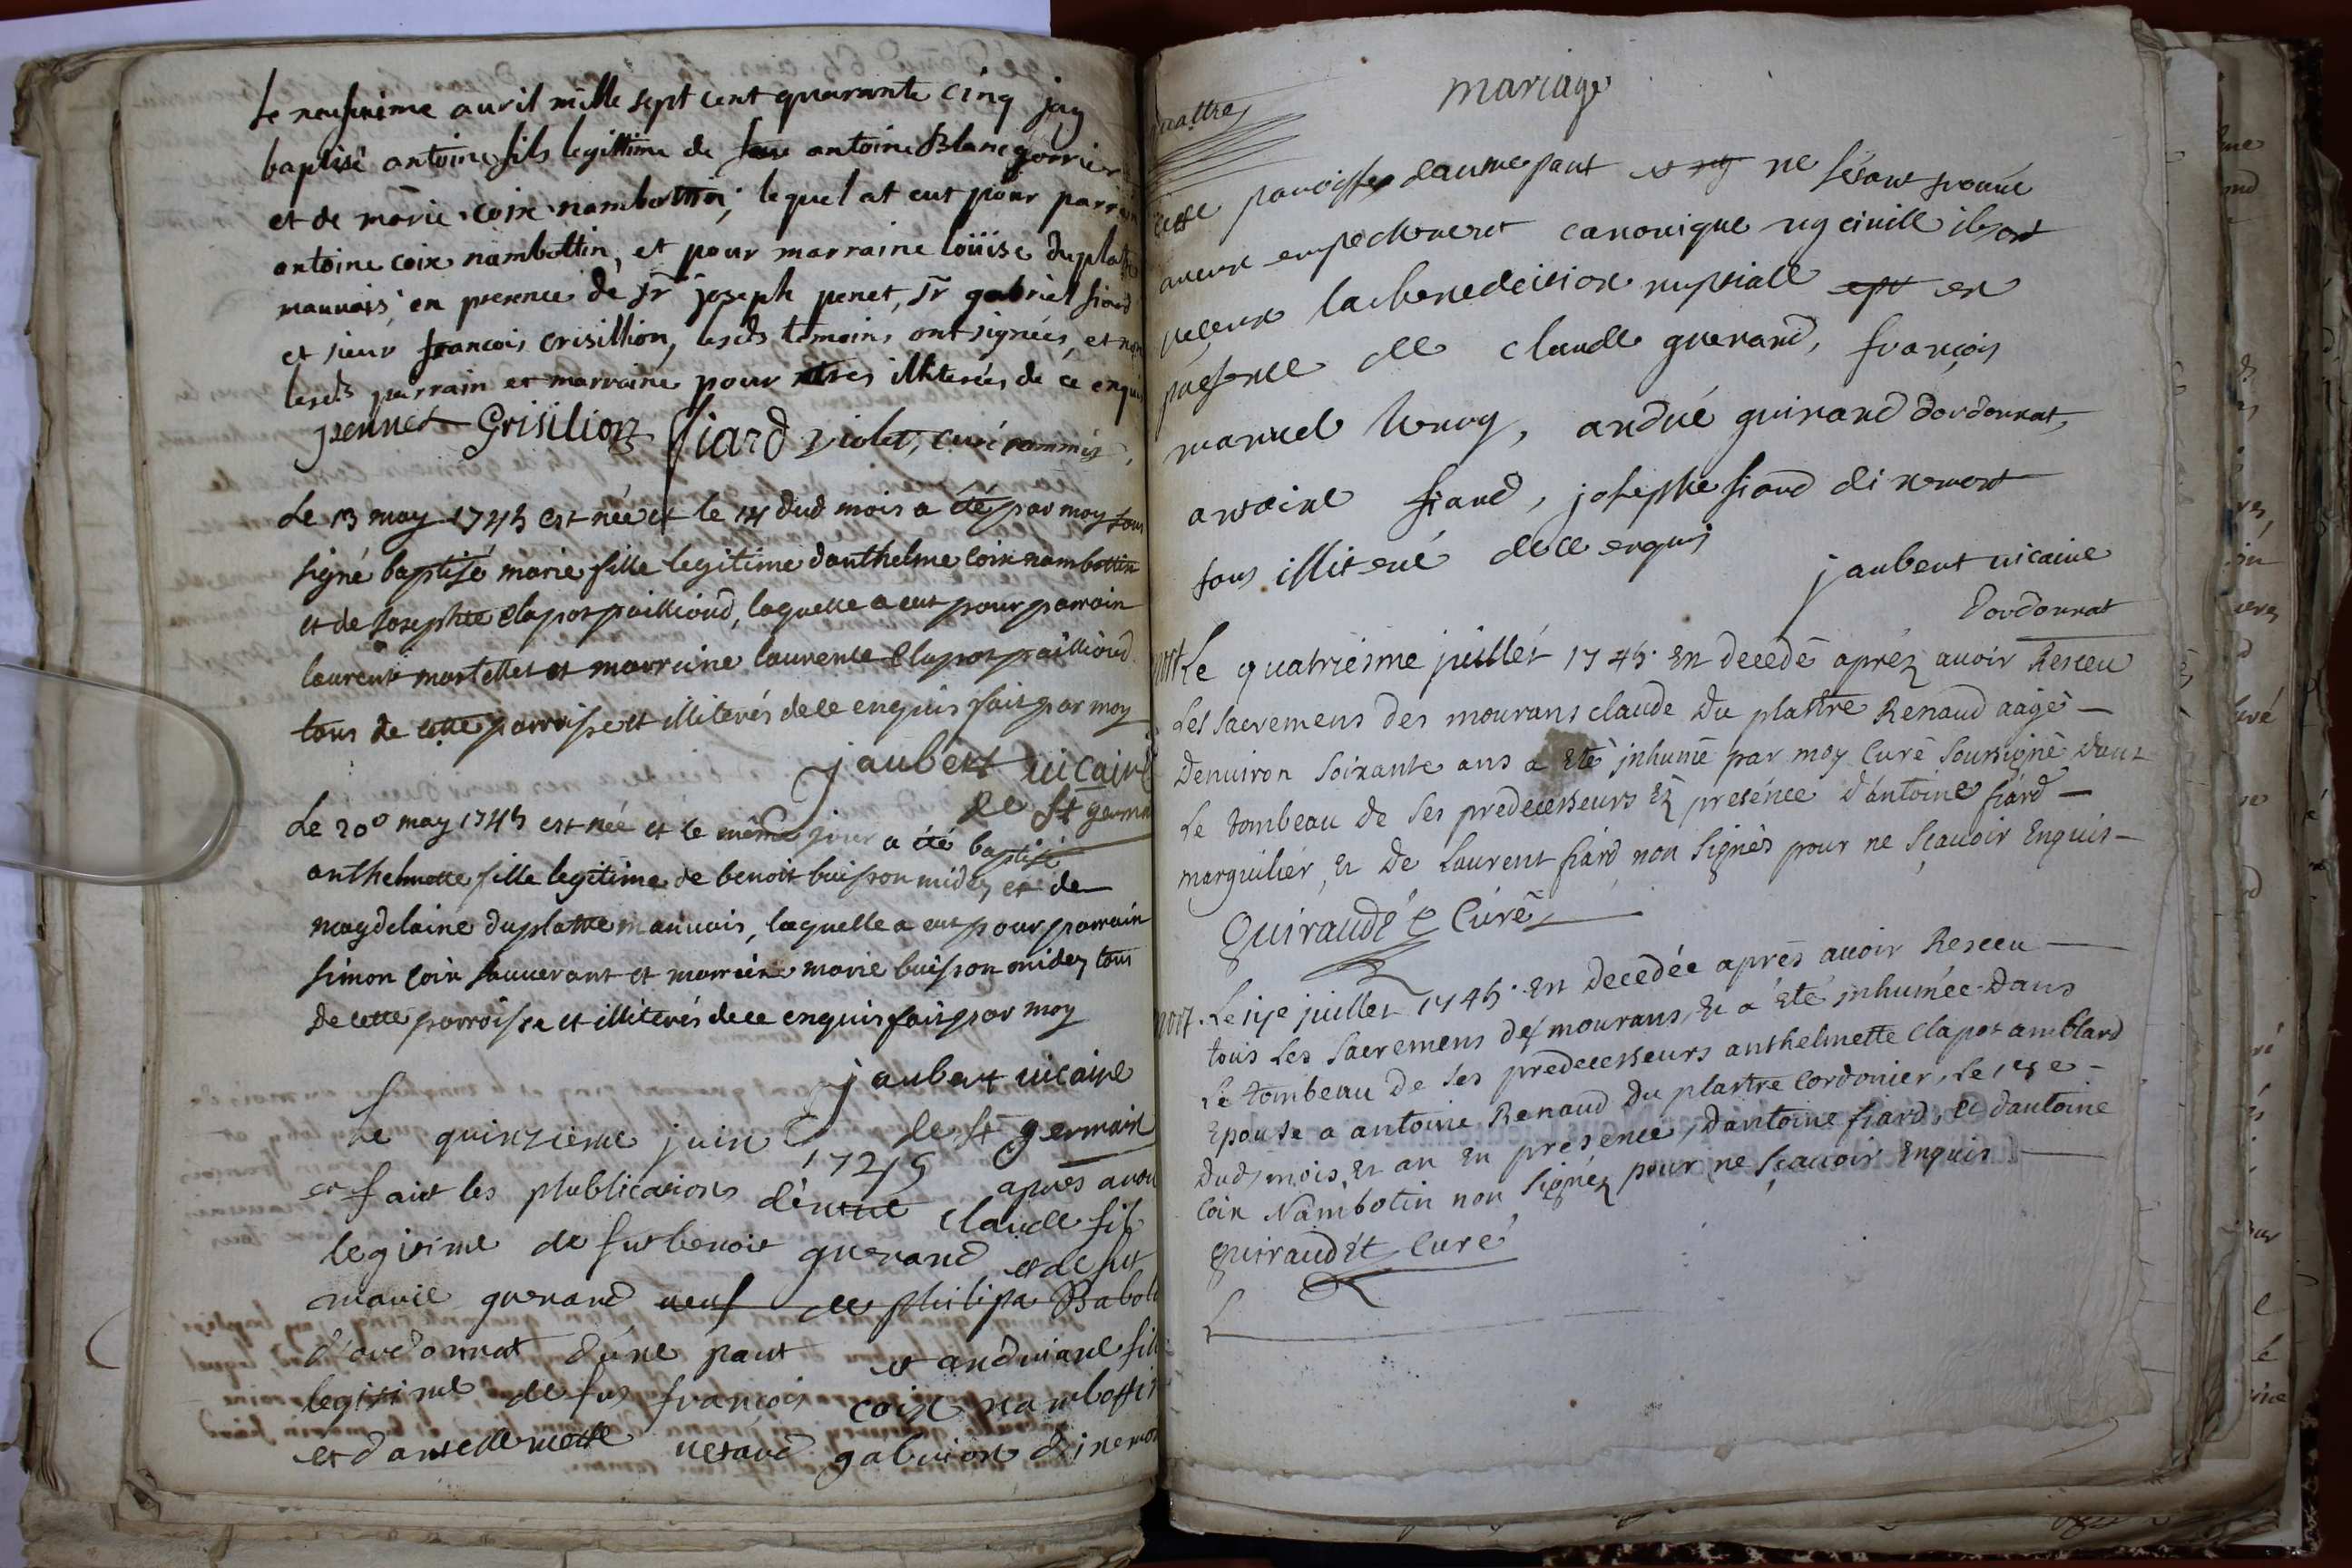 Le neufvieme avril mille sept cent quarante cinq jay
baptisé antoine fils legittime de feu antoine Blanc gorrier
et de marie coix nambottin; lequel at eut pour parrain
antoine coix nambottin, et pour marraine loüise duplatre
mauvais en presence de sr joseph penet, sr gabriel fiard
et sieur francois crisillion, lesds temoins ont signées, et non
lesds parrain et marraine pour etres illiterées de ce enquis
pennet Grisilion fiard violet, curé commis
Le 13 may 1745 est née et le 14 dud mois a été par moy sous
signé baptisé marie fille legitime d'anthelme Coix nambottin
et de Josephte Clapot paillioud, laquelle a eut pour parrain
laurent martellet et marraine laurence Clapot paillioud
tous de cette parroisse et illiterés de ce enquis fait par moy
jaubert vicaire
de st germain
Le 20e may 1745 est née et le même jour a été baptisé
anthelmette fille legitime de benoit buisson midez et de
magdelaine duplatre mauvais, laquelle a eut pour parrain
simon Coix sauverant et marraine marie buisson midez tous
de cette parroisse et illiterés de ce enquis fait par moy
jaubert vicaire
de st germain
Le quinzieme juin 1745 apres avoir
et fait les plublications d'entre claude fils
legitime de fut benoit guerand et de fut
marie guerand veuf de philipa Babolat
d'ordonnat d'une part et andriane fille
legitime de fut françois coix nambottin
et d'antellemette vetard gabrion dinemont
mariage
quattre
cette paroisse d'autre part et ny ne sétant trouvé
aucun empechement canonique ny civille ils ont
reçeux la benedeition nuptiale ept en
presence de claude guerand, françois
marcel Uvroy, andrè guirand dordonnat,
antoine fiard, josephe fiard dinemont
tous illiteré de ce enquis
jaubert vicaire
Dordonnat
mort Le quatriesme juillet 1745. Est decedé aprés avoir Resceu
Les sacremens des mourans claude Du plastre Renaud aagé
Denviron soixante ans a eté jnhumé par moy Curé soussigné dans
Le tombeau de ses predecesseurs En presénce d'antoine fiard
marguilier, Et De Laurent fiard non signés pour ne sçavoir Enquis
Guiraudét Curé
mort. Le 17e juillet 1745. Est Decedée aprés avoir Resceu
tous Les sacremens des mourans, Et a été jnhumée Dans
Le tombeau de ses predecesseurs anthelmette Clapot amblard
Epouse a antoine Renaud Du plastre Cordonier, Le 18e
Dud mois Et an En presence, Dantoine fiard, Et dantoine
Coix Nambotin non signéz pour ne sçavoir Enquis
Guiraudét Curé